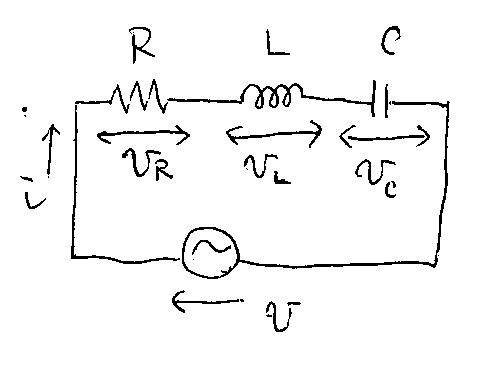 R L C
i
v_R v_L v_C
v